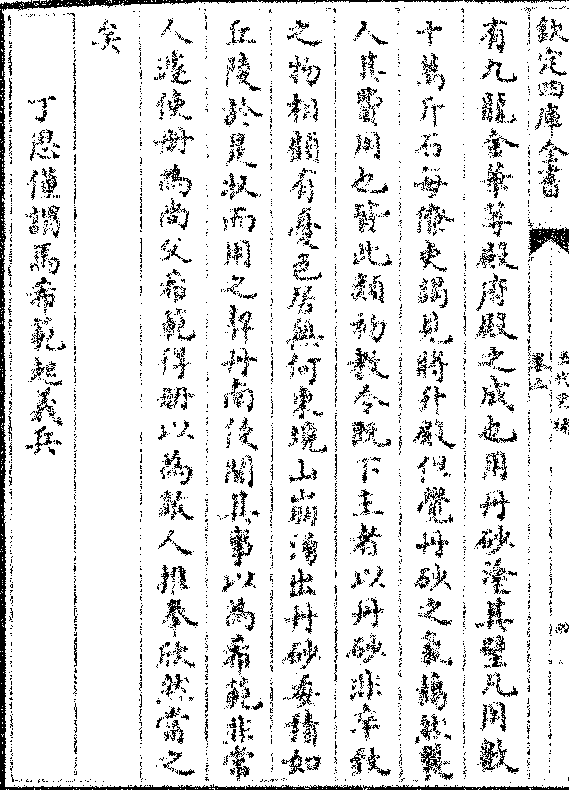 欽定四庫全書
五代史補
卷三
四
有九龍金華等殿府殿之成也用丹砂塗其壁凡用數
十萬斤石每僚吏謁見將升殿但覺丹砂之氣藹然襲
人其費用也皆此類初教令既下主者以丹砂非卒致
之物相顧有憂色居無何東境山崩湧出丹砂委積如
丘陵於是收而用之契丹南侵聞其事以為希範非常
人遽使冊為尚父希範得冊以為敵人推奉欣然當之
矣
丁思僅謂馬希範起義兵